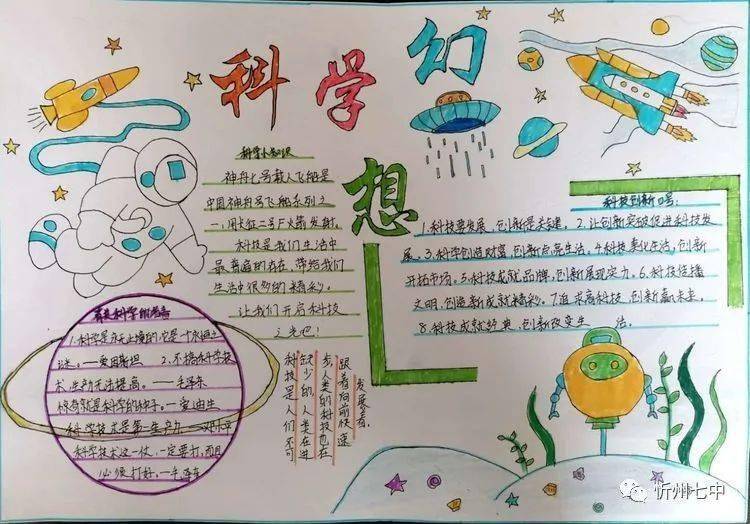 科学幻
想
科学小知识
神舟七号载人飞船是
中国神舟号飞船系列之
一,用长征二号F火箭发射。
科技是我们生活中
最普遍的存在,带给我们
生活中很多的精彩。
让我们开启科技
之光吧!
科技创新口号:
1.科技要发展,创新是关键。2.让创新突破促进科技发
展。3.科学创造财富,创新点亮生活。4.科技美化生活,创新
开拓市场。5.科技成就品牌,创新展现实力。6.科技传播
文明,创造新成就精彩。7.追求高科技,创新赢未来。
8.科技成就经典,创新改变生活。
有关科学的名言
1.科学是永无止境的,它是一个永恒之
谜。——爱因斯坦 2.不搞科学技
术,生产无法提高。——毛泽东
惊奇就是科学的种子。—爱迪生
科学技术是第一生产力 —邓小平
科学技术这一仗,一定要打,而且
必须打好。—毛泽东
发展着。
跟着向前快速
步,人类的科技也在
缺少的,人类在进
科技是人们不可
忻州七中